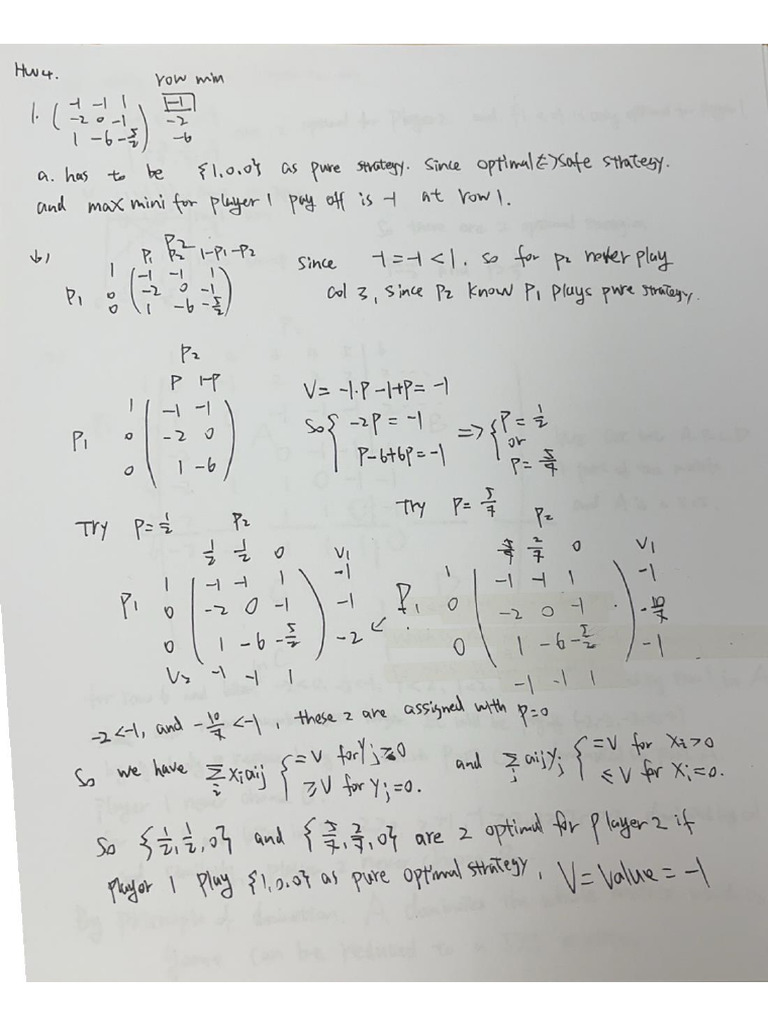 HW4.
row min
1. ( -1 -1 1 ) [-1]
( -2 0 -1 ) -2
( 1 -6 -5/2 ) -6
a. has to be {1,0,0} as pure strategy. Since optimal <=> safe strategy.
and max mini for player 1 pay off is -1 at row 1.
b) P2
P1 P2 1-P1-P2
1 ( -1 -1 1 )
P1 0 ( -2 0 -1 )
0 ( 1 -6 -5/2 )
Since -1=-1<1. so for P2 never play
Col 3, since P2 know P1 plays pure strategy.
P2
P 1-P
1 ( -1 -1 )
P1 0 ( -2 0 )
0 ( 1 -6 )
V = -1·P -1+P = -1
So { -2P = -1 => { P = 1/2
or
P-6+6P = -1 P = 5/7
Try P = 1/2
P2
1/2 1/2 0 V1
1 ( -1 -1 1 ) -1
P1 0 ( -2 0 -1 ) -1
0 ( 1 -6 -5/2 ) -2
V2 -1 -1 1
Try P = 5/7
P2
5/7 2/7 0 V1
1 ( -1 -1 1 ) -1
P1 0 ( -2 0 -1 ) -10/7
0 ( 1 -6 -5/2 ) -1
-1 -1 1
-2<-1, and -10/7<-1, these 2 are assigned with P=0
So we have Σi xi aij { =V for Yj≥0 and Σj aij yj { =V for Xi>0
≥V for Yj=0. ≤V for Xi=0.
So {1/2, 1/2, 0} and {5/7, 2/7, 0} are 2 optimal for player 2 if
player 1 play {1,0,0} as pure optimal strategy, V = Value = -1